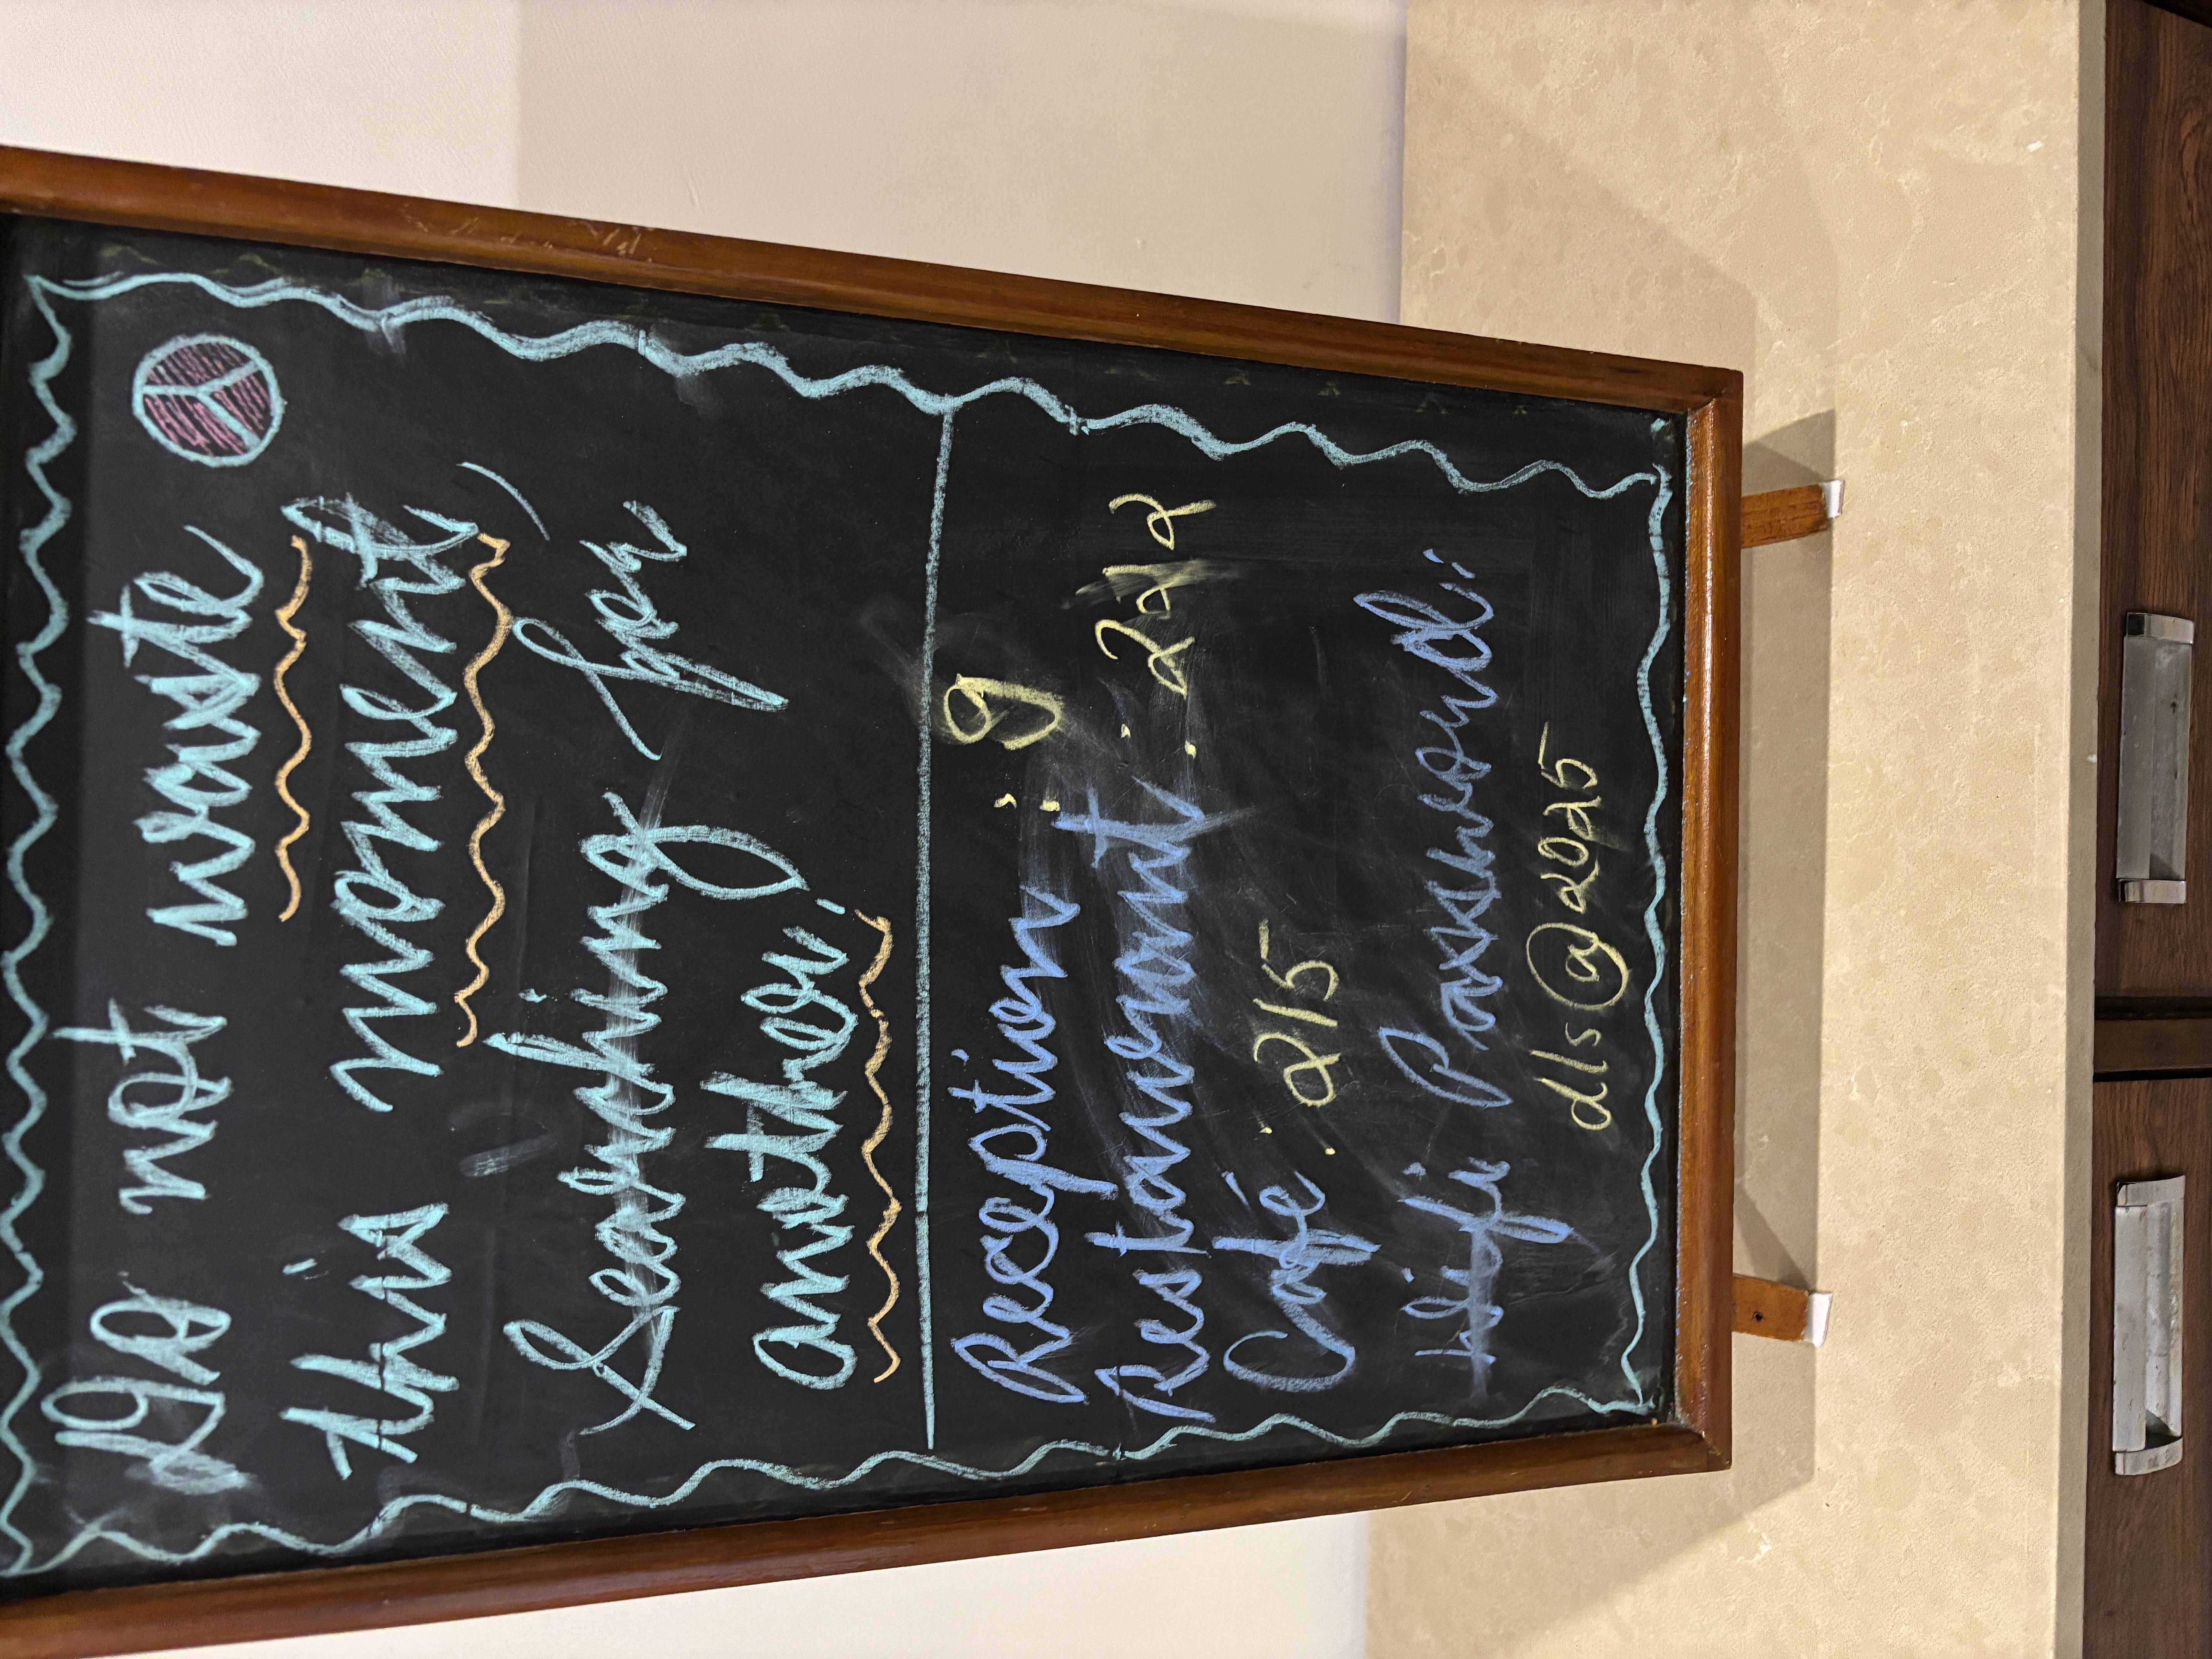 Do not waste
this moment,
Searching for
another.
Reception : 9
Restaurant : 212
Café : 215
Wifi Password:
dls@2025